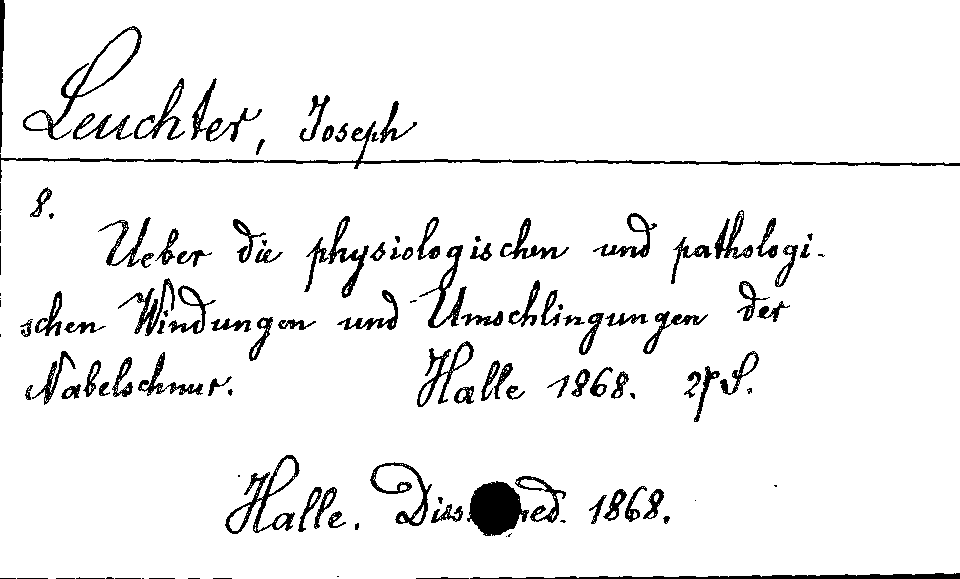 Leuchter, Joseph
8.
Ueber die physiologischen und pathologi-
schen Windungen und Umschlingungen der
Nabelschnur. Halle 1868. S.
Halle. Diss. 1868.